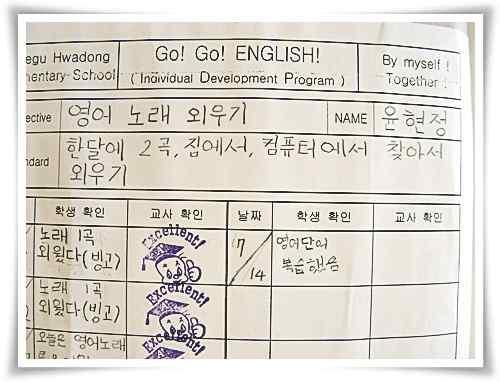 egu Hwadong
mentary School
Go! Go! ENGLISH!
( Individual Development Program )
By myself !
Together !
ective
영어 노래 외우기
NAME
윤현정
ndard
한달에 2곡, 집에서, 컴퓨터에서 찾아서
외우기
학생 확인
교사 확인
날짜
학생 확인
교사 확인
노래 1곡
외웠다(빙고)
Excellent!
7/14
영어단어
복습했음
노래 1곡
외웠다(빙고)
Excellent!
오늘은 영어노래
Excellent!